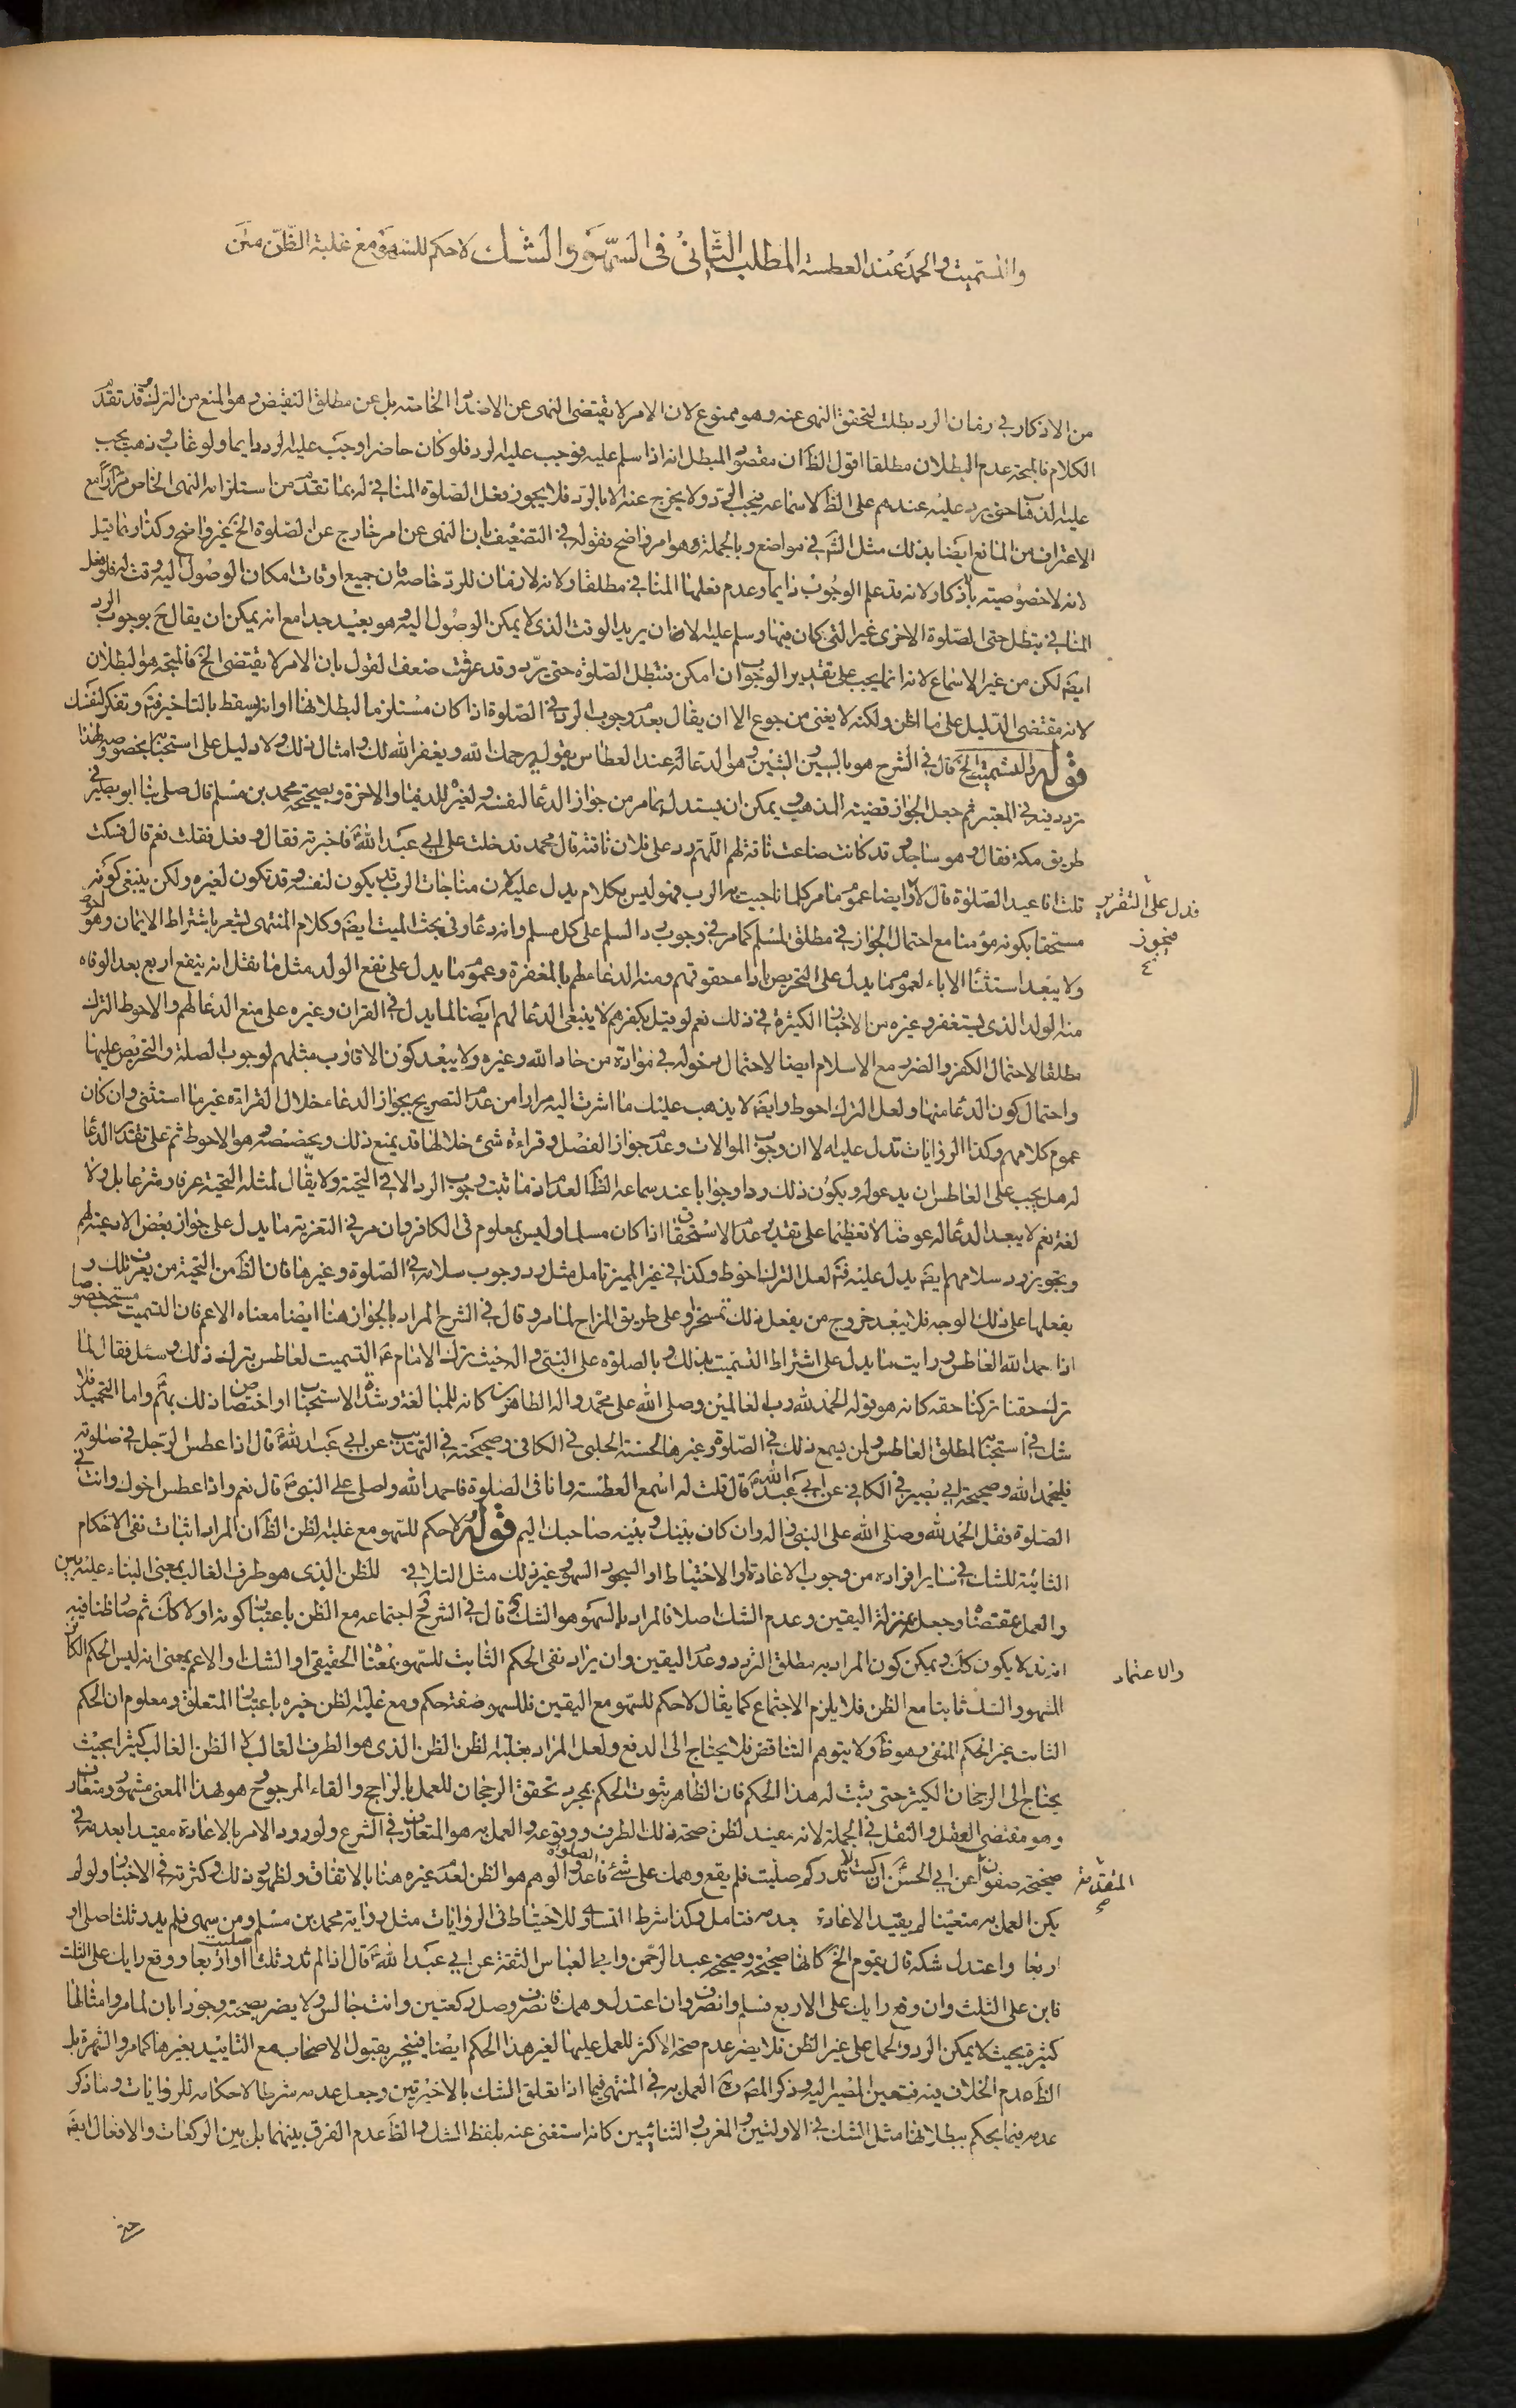 والتسميت والحمد عند العطسة المطلب الثاني في السهو والشك لا حكم للسهو مع غلبة الظن متن
من الاذكار في زمان الرد بطلت لتحقق النهى عنه وهو ممنوع لان الامر لا يقتضى النهى عن الاضداد الخاصة بل عن مطلق النقيض وهو المنع من الترك وقد تقدم
الكلام فالمتجه عدم البطلان مطلقا اقول الظ ان مقصود المبطل انه اذا سلم عليه فوجب عليه الرد فلو كان حاضرا وجب عليه الرد دايما ولو غاب وذهب يجب
عليه الذهاب حتى يرد عليه عندهم على الظ لاسماعه فيجب الرد ولا يخرج عنه الا بالرد فلا يجوز فعل الصلوة المنافى له بما تقدم من استلزامه النهى الخاص مرارا مع
الاعتراف من المانع ايضا بذلك مثل الش في مواضع وبالجملة وهو امر واضح بقوله في التضعيف بان النهى عن امر خارج عن الصلوة الخ غير واضح وكذا ربما قيل
لانه لا خصوصية باذكار ولانه قد علم الوجوب دايما وعدم فعلها المنافى مطلقا ولانه لا زمان للرد خاصة فان جميع اوقات امكان الوصول اليه وقت له فلو فعل
المنافى بتطل حتى الصلوة الاخرى غير التى كان فيها وسلم عليه الا زمان يريد الوقت الذى لا يمكن الوصول اليه وهو بعيد جدا مع انه يمكن ان يقال ح بوجوب الرد
ايضا لكن من غير الاسماع لانه انما يجب على تقدير الوجوب ان امكن فتبطل الصلوة حتى يرد وقد عرفت ضعف القول بان الامر لا يقتضى الخ فالمتجه هو البطلان
لانه مقتضى الدليل على ما اظن ولكنه لا يغنى من جوع الا ان يقال بعدم وجوب الرد في الصلوة اذا كان مستلزما لبطلانها او انه يسقط بالتاخير فت وتفكر لنفسك
قوله والتسميت الخ قال في الشرح هو بالسين والشين وهو الدعا له عند العطاس بقوله يرحمك الله ويغفر الله لك وامثال ذلك ولا دليل على استحبابه بخصوصه ولهذا
تردد فيه في المعتبر ثم جعل الجواز قضية المذهب ويمكن ان يستدل بما مر من جواز الدعا لنفسه ولغيره للدنيا والاخرة وبصحيحة محمد بن مسلم قال صلى بنا ابو بصير في
طريق مكة فقال وهو ساجد وقد كانت ضاعت ناقة لهم اللهم رد على فلان ناقته قال محمد فدخلت على ابي عبد الله ع فاخبرته فقال وفعل فقلت نعم قال فسكت
قلت افاعيد الصلوة قال لا وايضا عموم ما مر كلما ناجيت به الرب فهو ليس بكلام يدل عليه لان مناجات الرب قد يكون لنفسه وقد تكون لغيره ولكن ينبغى كونه
فدل على التقرير
مستحقا بكونه مؤمنا مع احتمال الجواز في مطلق المسلم كما مر في وجوب رد السلم على كل مسلم وانه دعا وفي بحث الميت ايضا وكلام المنتهى يشعر باشتراط الايمان وهو احوط
فيجوز
ولا يبعد استثناء الاباء لعموم ما يدل على التحريص باداء حقوقهم ومنه الدعاء لهم بالمغفرة وعموم ما يدل على نفع الولد مثل ما نقل انه ينفع اربع بعد الوفاة
منه الولد الذى يستغفر وغيره من الاخبار الكثيرة في ذلك نعم لو قيل بكفرهم لا ينبغى الدعا لهم ايضا لما يدل في القران وغيره على منع الدعا لهم والاحوط الترك
مطلقا لاحتمال الكفر والضرر مع الاسلام ايضا لاحتمال دخوله في موادة من حاد الله وغيره ولا يبعد كون الاقارب مثلهم لوجوب الصلة والتحريص عليها
واحتمال كون الدعا منها ولعل الترك احوط وايضا لا يذهب عليك ما اشرت اليه مرارا من عدم التصريح بجواز الدعاء خلال القراءة غير ما استثنى وان كان
عموم كلامهم وكذا الروايات تدل عليه الا ان وجوب الموالات وعدم جواز الفصل وقراءة شئ خلالها قد يمنع ذلك ويخصصه وهو الاحوط ثم على تقدير الدعا
له هل يجب على العاطس ان يدعو له ويكون ذلك ردا وجوابا عند سماعه الظ العدم اذ ما ثبت وجوب الرد الا في التحية ولا يقال لمثله التحية عرفا وشرعا بل ولا
لغة نعم لا يبعد الدعا له عوضا لا تعظيما على تقدير عدم الاستحقاق اذا كان مسلما وليس بمعلوم في الكافر وان مر في التعزية ما يدل على جواز بعض الادعية لهم
وتجويز رد سلامهم ايضا يدل عليه فت لعل الترك احوط وكذا في غير المميز تامل مثل رد وجوب سلامه في الصلوة وغيرها فان الظ من التحية من يعرف ذلك و
يفعلها على ذلك الوجه فلا يبعد خروج من يفعل ذلك تمسخرا وعلى طريق المزاح لما مر وقال في الشرح المراد بالجواز هنا ايضا معناه الاعم فان التسميت مستحب خصوصا
اذا حمد الله العاطس ورايت ما يدل على اشتراط التسميت بذلك وبالصلوة على النبي واله حيث ترك الامام ع التسميت لعاطس بترك ذلك وسئل فقال لما
ترك حقنا تركنا حقه كانه هو قوله الحمد لله رب العالمين وصلى الله على محمد واله الطاهرين كانه للمبالغة وشدة الاستحباب او اختصاص ذلك بهم واما التحميد فلا
شك في استحبابه لمطلق العاطس ولمن يسمع ذلك في الصلوة وغيرها لحسنة الحلبى في الكافى وصحيحته في التهذيب عن ابي عبد الله ع قال اذا عطس الرجل في صلوته
فليحمد الله وصحيحة ابي بصير في الكافي عن ابي عبد الله ع قال قلت له اسمع العطسة وانا في الصلوة فاحمد الله واصلى على النبى ص قال نعم واذا عطس اخوك وانت في
الصلوة فقل الحمد لله وصلى الله على النبى واله وان كان بينك وبينه صاحبك اليم قوله لا حكم للسهو مع غلبة الظن الظ ان المراد اثبات نفى الاحكام
الثابتة للشك في ساير افراده من وجوب الاعادة او الاحتياط او السجود السهو وغير ذلك مثل التلافى للظن الذى هو طرف الغالب بمعنى البناء عليه
والعمل بمقتضاه وجعله بمنزلة اليقين وعدم الشك اصلا فالمراد بالسهو هو الشك وقال في الشرح اجتماعه مع الظن باعتبار كونه اولا كك ثم صار ظنا فيه
والاعتماد
انه قد لا يكون كك ويمكن كون المراد به مطلق التردد وعدم اليقين وان يراد نفى الحكم الثابت للسهو بمعناه الحقيقى او الشك او الاعم بمعنى انه ليس الحكم الكائن
للسهو والشك ثابتا مع الظن فلا يلزم الاجتماع كما يقال لا حكم للسهو مع اليقين فللسهو صفة حكم ومع غلبة الظن خبره باعتبار المتعلق ومعلوم ان الحكم
الثابت غير الحكم المنفى وهو ظ ولا يتوهم التناقض فلا يحتاج الى الدفع ولعل المراد بغلبة الظن الظن الذى هو الطرف الغالب لا الظن الغالب كثيرا بحيث
يحتاج الى الرجحان الكثير حتى يثبت له هذا الحكم فان الظاهر ثبوت الحكم بمجرد تحقق الرجحان للعمل بالراجح والقاء المرجوح وهو لهذا المعنى مشهور ومتعارف
وهو مقتضى العقل والنقل في الجملة لانه مفيد لظن صحة ذلك الطرف ووقوعه والعمل به هو المتعارف في الشرع ولورود الامر بالاعادة مقيدا بعدمه في
صحيحة صفوان عن ابي الحسن ع ان كنت لا تدرى كم صليت فلم يقع وهمك على شئ فاعد الصلوة والوهم هو الظن لعدم غيره هنا بالاتفاق ولظهور ذلك وكثرته في الاخبار ولو لم
المتقدمة
يكن العمل به متعينا لم يقيد الاعادة بعدمه فتامل وكذا شرط التساوى للاحتياط في الروايات مثل رواية محمد بن مسلم ومن سهى فلم يدر ثلثا صلى او
اربعا واعتدل شكه قال يقوم الخ كانها صحيحة وصحيحة عبد الرحمن وابي العباس الثقة عن ابي عبد الله ع قال اذا لم تدر ثلثا صليت او اربعا ووقع رايك على الثلث
فابن على الثلث وان وقع رايك على الاربع فسلم وانصرف وان اعتدل وهمك فانصرف وصل ركعتين وانت جالس ولا يضر بصحته وجود ابان لما مر وامثالها
كثيرة بحيث لا يمكن الرد والحمل على غير الظن فلا يضر عدم صحة الاكثر للعمل عليها لغير هذا الحكم ايضا فينجبر بقبول الاصحاب مع التاييد بغيرها كما مر والشهرة بل
الظ عدم الخلاف فيه فتعين المصير اليه وذكر المصره العمل به في المنتهى فيما اذا تعلق الشك بالاخيرتين وجعل عدمه شرطا لاحكامه للروايات وما ذكر
عدمه فيما يحكم ببطلانها مثل الشك في الاولتين والمغرب والثنائيين كانه استغنى عنه بلفظ الشك والظ عدم الفرق بينهما بل بين الركعات والافعال ايضا